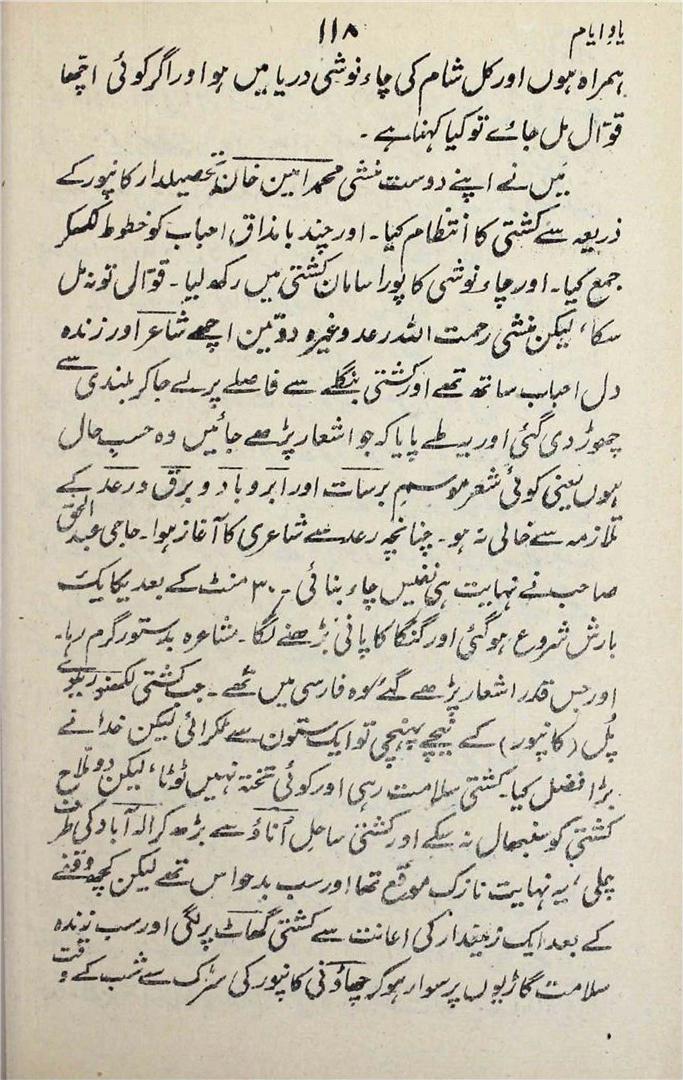 یادِ ایام
۱۱۸
ہمراہ ہوں اور کل شام کی چاء نوشی دریا میں ہو اور اگر کوئی اچھا
قوّال مل جائے تو کیا کہنا ہے ۔
میں نے اپنے دوست منشی محمد امین خان تحصیلدار کانپور کے
ذریعہ سے کشتی کا انتظام کیا ۔ اور چند بامذاق احباب کو خطوط لکھکر
جمع کیا ۔ اور چاء نوشی کا پورا سامان کشتی میں رکھ لیا ۔ قوّال تو نہ مل
سکا، لیکن منشی رحمت اللہ رعد وغیرہ دو تین اچھے شاعر اور زندہ
دل احباب ساتھ تھے اور کشتی بنگلے سے فاصلے پر لے جا کر بلندی سے
چھوڑ دی گئی اور یہ طے پایا کہ جو اشعار پڑھے جائیں وہ حسبِ حال
ہوں یعنی کوئی شعر موسمِ برسات اور ابر و باد و برق و رعد کے
تلازمہ سے خالی نہ ہو ۔ چنانچہ رعد سے شاعری کا آغاز ہوا ۔ حاجی عبد الحق
صاحب نے نہایت ہی نفیس چاء بنائی ۔ ۳۰ منٹ کے بعد یکایک
بارش شروع ہو گئی اور گنگا کا پانی بڑھنے لگا ۔ مشاعرہ بدستور گرم رہا ۔
اور جس قدر اشعار پڑھے گئے وہ فارسی میں تھے ۔ جب کشتی لکھنؤ ریلوے
پُل (کانپور) کے نیچے پہنچی تو ایک ستون سے ٹکرائی لیکن خدا نے
بڑا فضل کیا ۔ کشتی سلامت رہی اور کوئی تختہ نہیں ٹوٹا، لیکن دو ملّاح
کشتی کو سنبھال نہ سکے اور کشتی ساحل اُناؤ سے بڑھ کر الہ آباد کی طرف
چلی، یہ نہایت نازک موقع تھا اور سب بدحواس تھے لیکن کچھ وقفے
کے بعد ایک زمیندار کی اعانت سے کشتی گھاٹ پر لگی اور سب زندہ
سلامت گاڑیوں پر سوار ہو کر چھاؤنی کانپور کی سڑک سے شب کے وقت